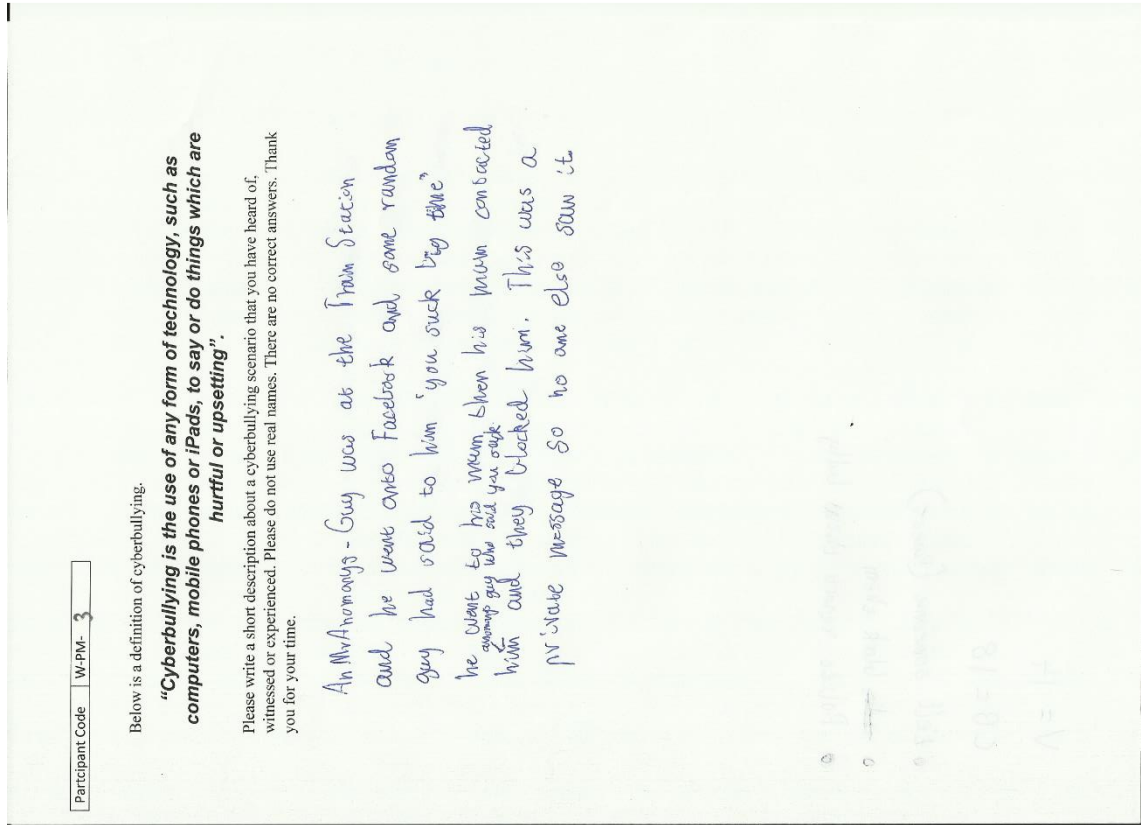 Partcipant Code W-PM- 3
Below is a definition of cyberbullying.
"Cyberbullying is the use of any form of technology, such as
computers, mobile phones or iPads, to say or do things which are
hurtful or upsetting".
Please write a short description about a cyberbullying scenario that you have heard of,
witnessed or experienced. Please do not use real names. There are no correct answers. Thank
you for your time.
An Mr Anomanys-Guy was at the Train Station
and he went onto Facebook and some random
guy had said to him "you suck big time"
he went to his mum then his mum contacted
guy who said you suck
him and they blocked him. This was a
private message so no one else saw it